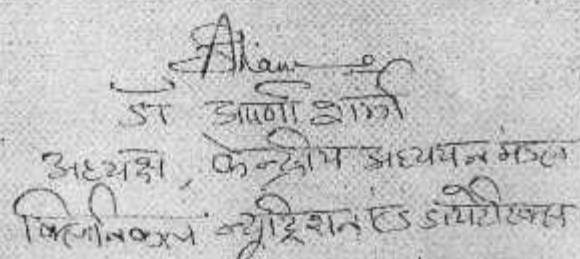 डॉ अपर्णा शर्मा
अध्यक्ष, केन्द्रीय अध्ययन मण्डल
क्लिनिकल न्यूट्रिशन एंड डायटेटिक्स